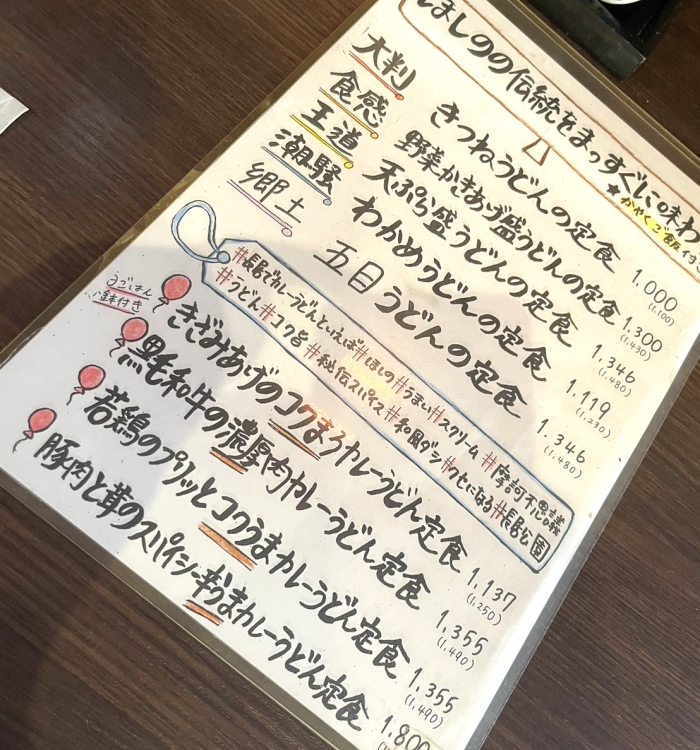 ほしのの伝統をまっすぐに味わ
★かやくご飯付
大判 きつねうどんの定食 1.000 (1.100)
食感 野菜かきあげ盛うどんの定食 1.300 (1.430)
王道 天ぷら盛うどんの定食 1.346 (1.480)
潮騒 わかめうどんの定食 1.119 (1.230)
郷土 五目うどんの定食 1.346 (1.480)
#長居でカレーうどんといえば#ほしの#うまい#スクリーム#摩訶不思議
#うどん#コク旨#秘伝スパイス#和風ダシ#クセになる#長居公園
小鉢付き
きざみあげのコクまろカレーうどん定食 1,137 (1,250)
黒毛和牛の濃厚肉カレーうどん定食 1.355 (1.490)
若鶏のプリッとコクうまカレーうどん定食 1.355 (1.490)
豚肉と茸のスパイシー辛うまカレーうどん定食 1.800